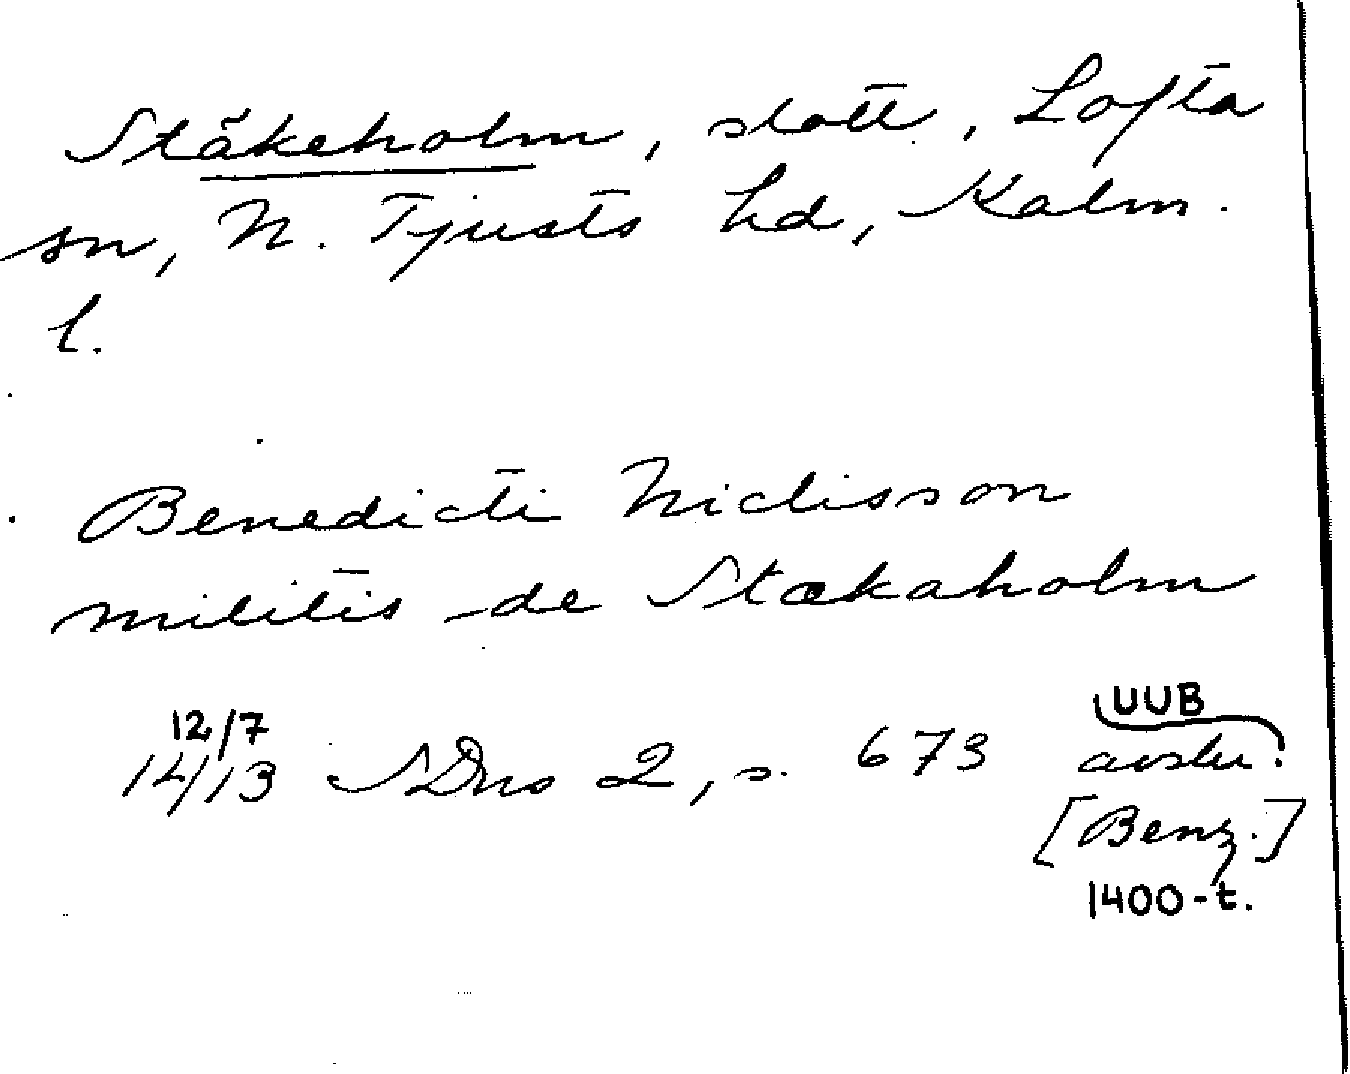 Stäkeholm, slott, Lofta
sn, N. Tjusts hd, Kalm.
l.
Benedicti Niclisson
militis de Stækaholm
12/7
14/13 SDns 2, s. 673
UUB
avskr.
[Benz.]
1400-t.